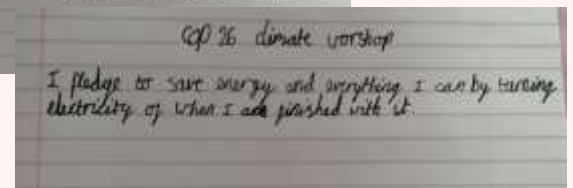 COP 26 climate worshop
I pledge to save energy and everything I can by turning
electricity of when I am finished with it.